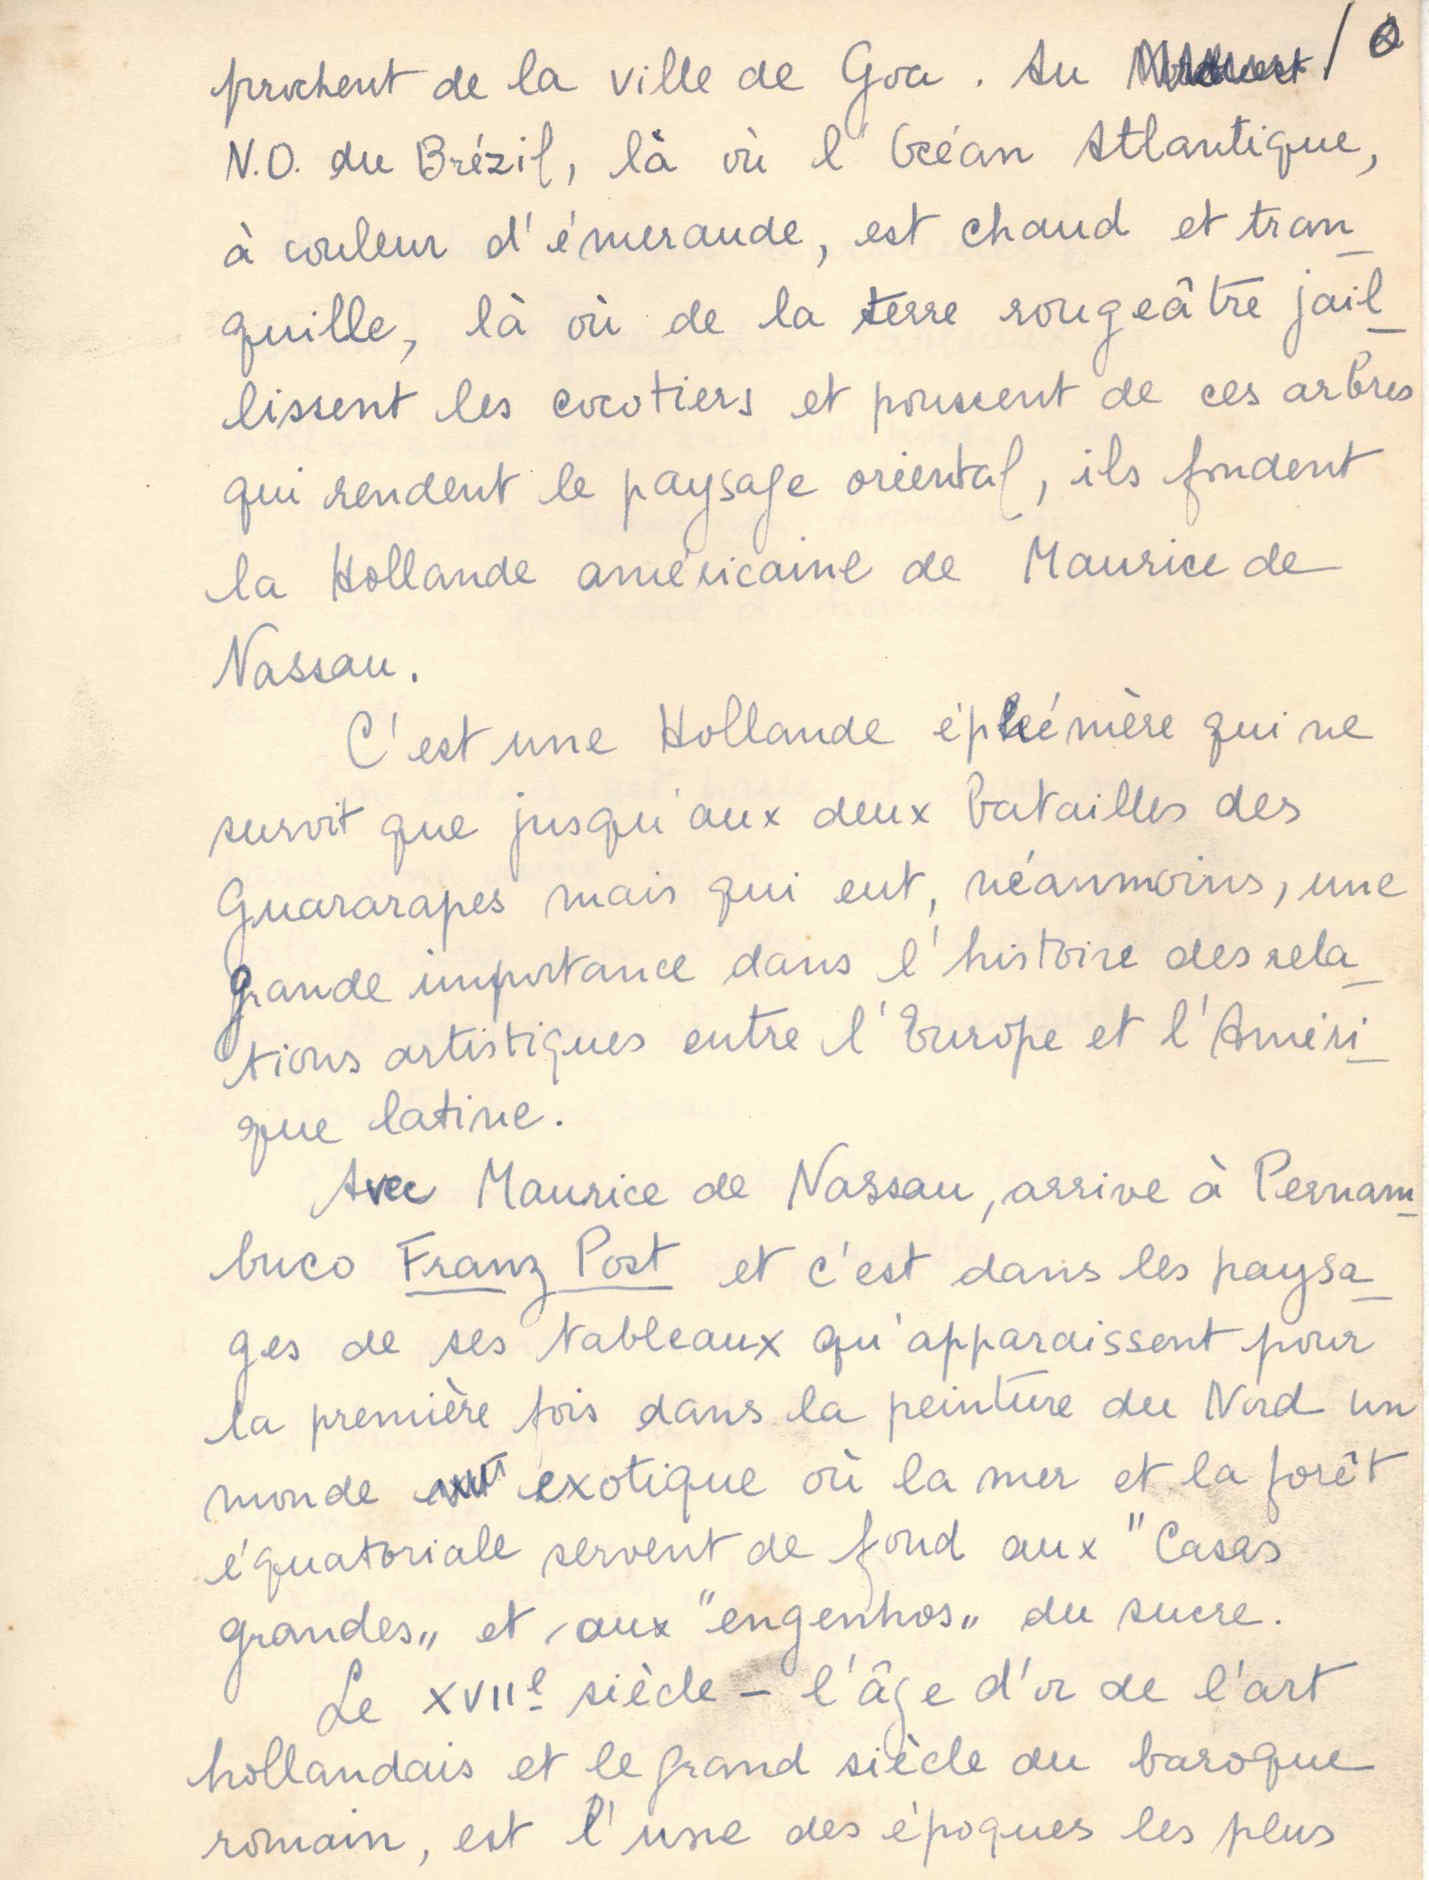 prochent de la ville de Goa. Au
N.O. du Brézil, là où l'Océan Atlantique,
à couleur d'émeraude, est chaud et tran
quille, là où de la terre rougeâtre jail
lissent les cocotiers et poussent de ces arbres
qui rendent le paysage oriental, ils fondent
la Hollande américaine de Maurice de
Nassau.
C'est une Hollande éphémère qui ne
survit que jusqu'aux deux batailles des
Guararapes mais qui eut, néanmoins, une
grande importance dans l'histoire des rela
tions artistiques entre l'Europe et l'Améri
que latine.
Avec Maurice de Nassau, arrive à Pernam
buco Franz Post et c'est dans les paysa
ges de ses tableaux qu'apparaissent pour
la première fois dans la peinture du Nord un
monde exotique où la mer et la forêt
équatoriale servent de fond aux "Casas
grandes„ et aux "engenhos„ du sucre.
Le XVIIe siècle – l'âge d'or de l'art
hollandais et le grand siècle du baroque
romain, est l'une des époques les plus